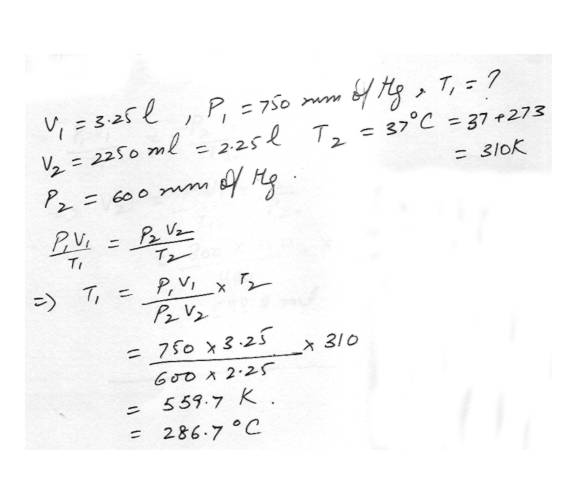 V₁ = 3.25 l , P₁ = 750 mm of Hg , T₁ = ?
V₂ = 2250 ml = 2.25 l T₂ = 37°C = 37+273
= 310K
P₂ = 600 mm of Hg .
P₁V₁/T₁ = P₂V₂/T₂
=> T₁ = P₁V₁/P₂V₂ x T₂
= 750 x 3.25/600 x 2.25 x 310
= 559.7 K .
= 286.7 °C